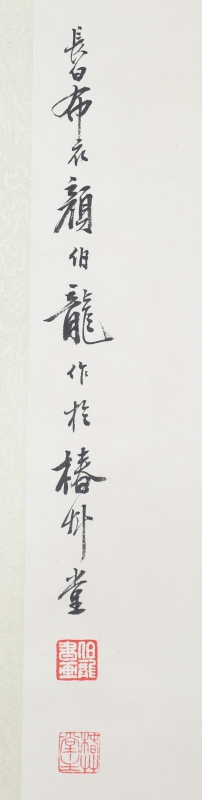 長白布衣顏伯龍作於椿艸堂
伯龍書畫